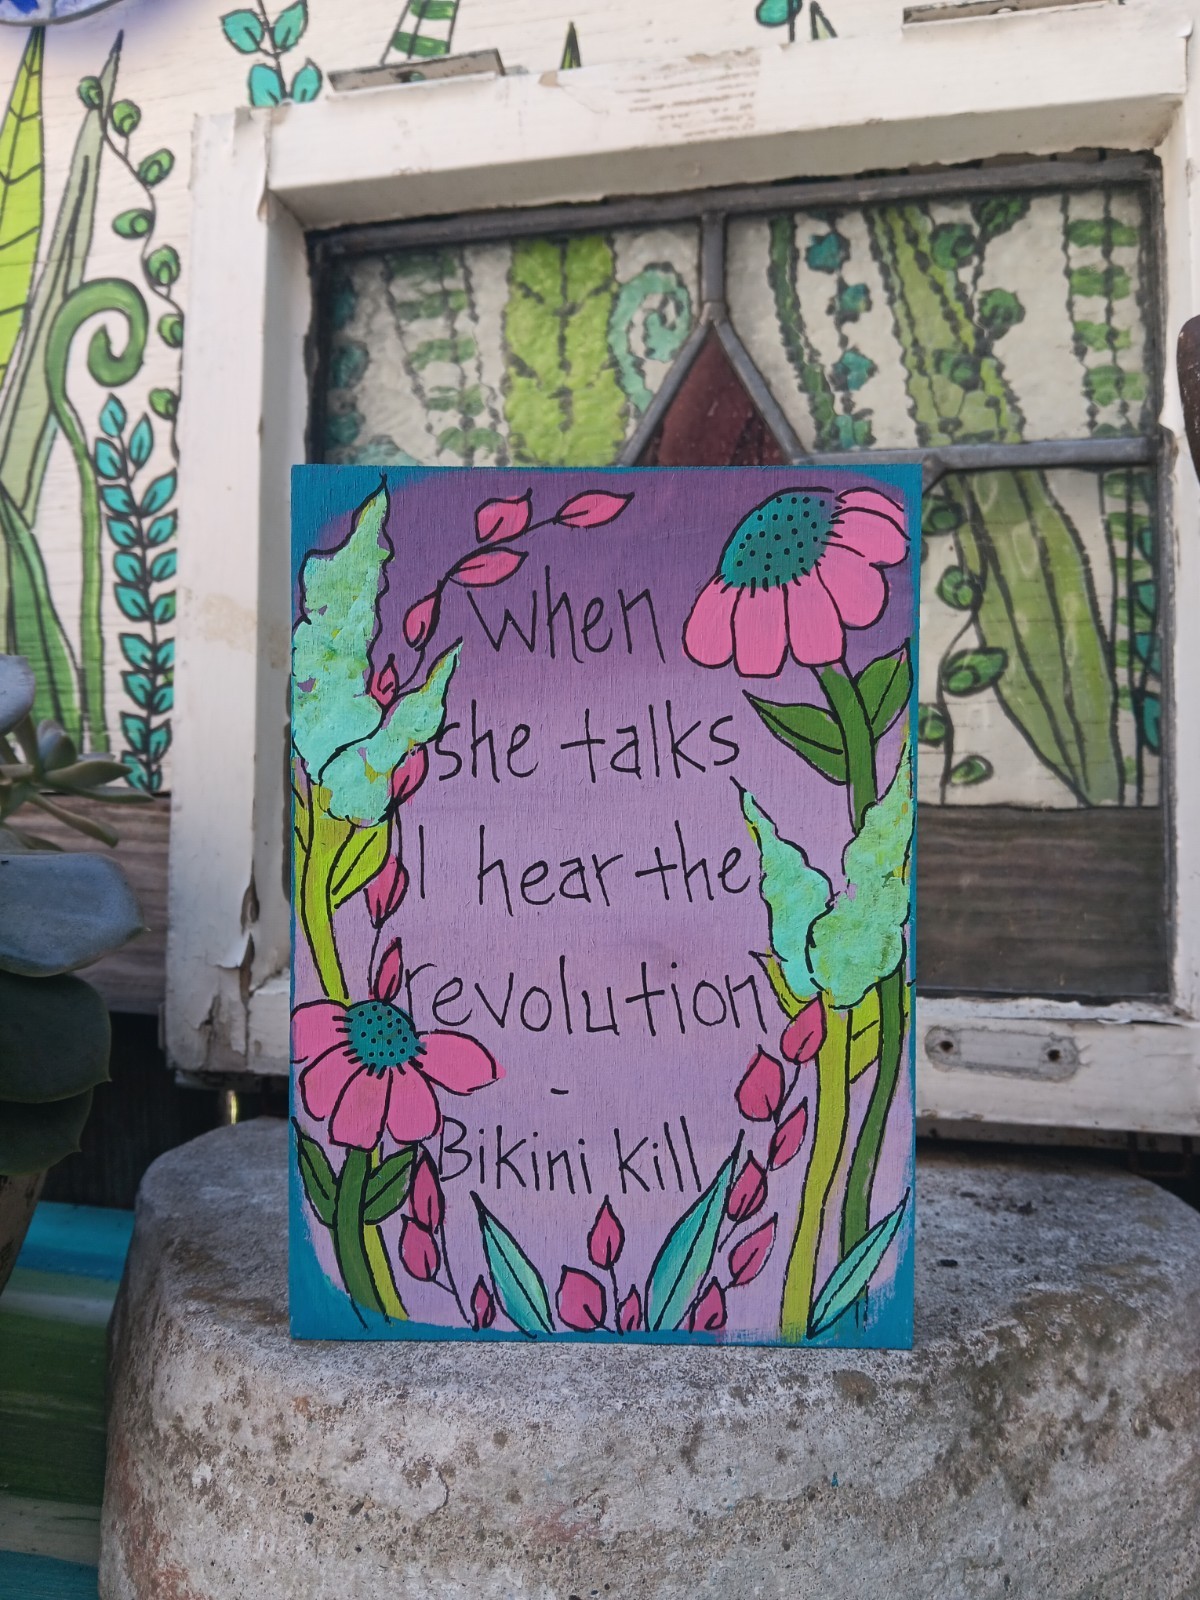 when
she talks
I hear the
revolution
-
Bikini kill